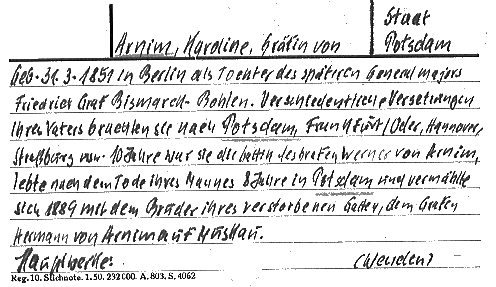 Staat
Arnim, Karoline, Gräfin von Potsdam
Geb. 31.3.1851 in Berlin als Tochter des späteren Generalmajors
Friedrich Graf Bismarck-Bohlen. Verschiedentliche Versetzungen
ihres Vaters brachten sie nach Potsdam, Frankfurt/Oder, Hannover,
Straßburg usw. 10 Jahre war sie die Gattin des Grafen Werner von Arnim,
lebte nach dem Tode ihres Mannes 8 Jahre in Potsdam und vermählte
sich 1889 mit dem Bruder ihres verstorbenen Gatten, dem Grafen
Hermann von Arnim auf Muskau.
Hauptwerke: (Wenden)
Reg. 10. Stichnote. 1. 50. 232 000. A. 803. S. 4062